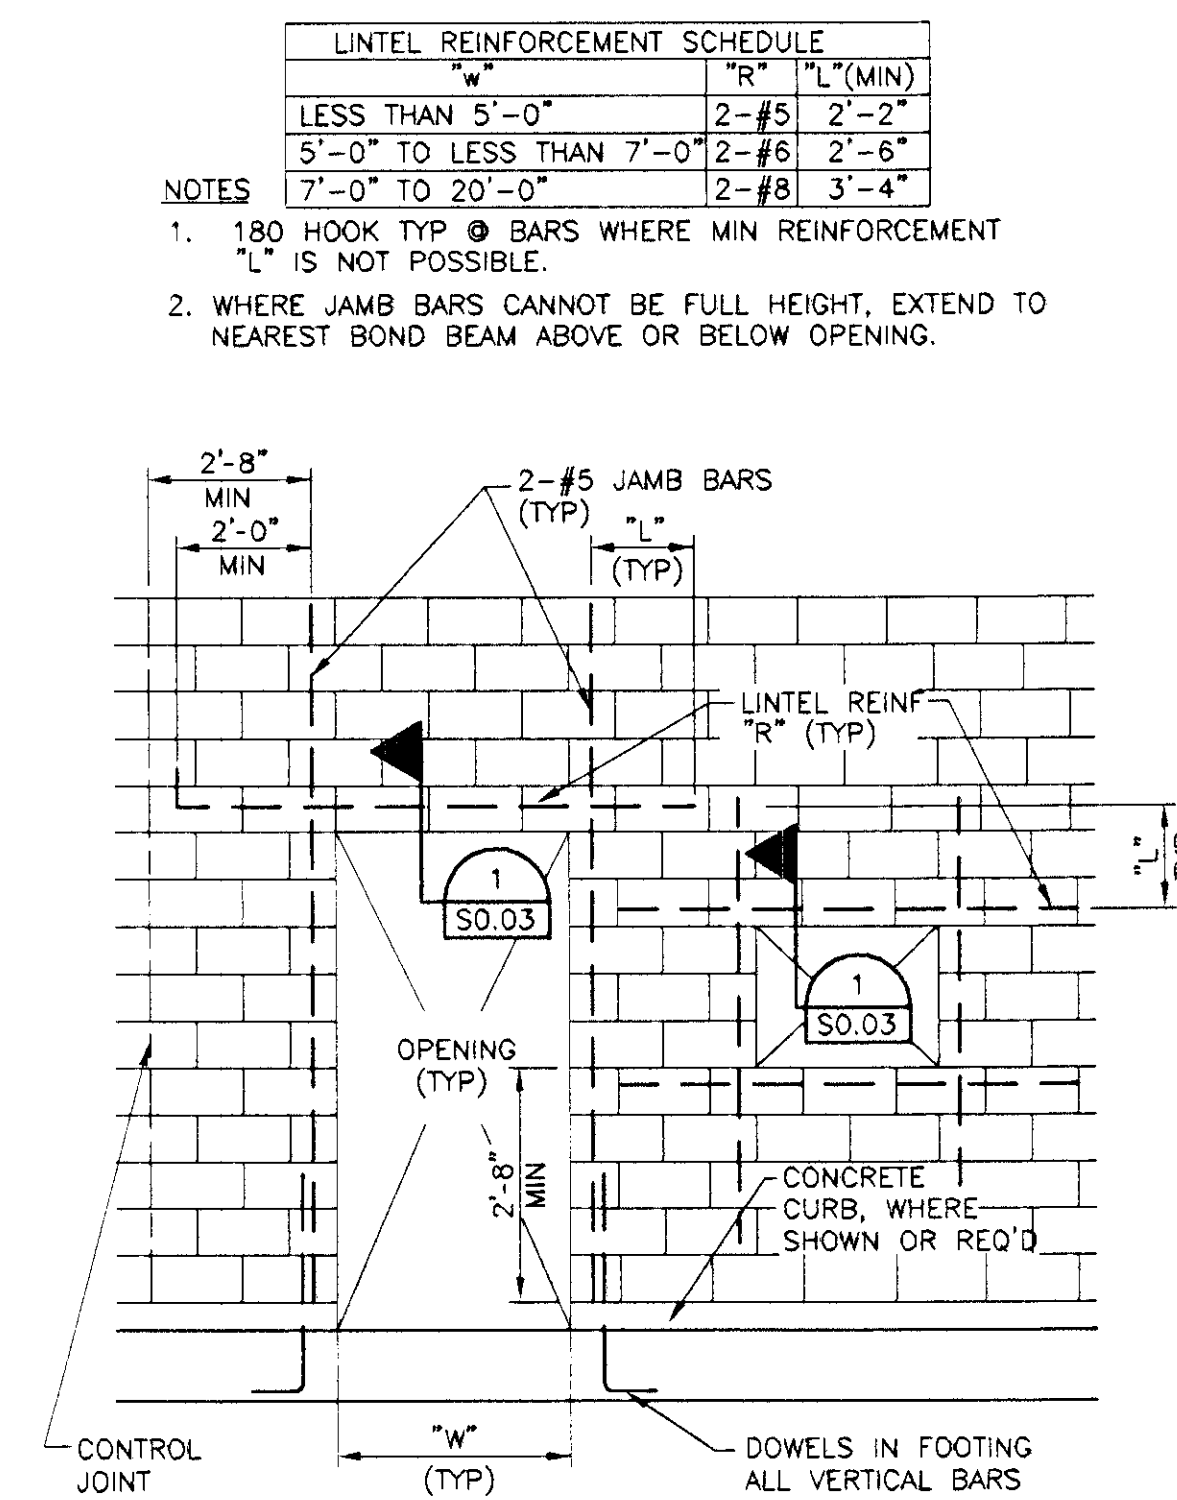 LINTEL REINFORCEMENT SCHEDULE
"W" "R" "L"(MIN)
LESS THAN 5'-0" 2-#5 2'-2"
5'-0" TO LESS THAN 7'-0" 2-#6 2'-6"
7'-0" TO 20'-0" 2-#8 3'-4"
NOTES
1. 180 HOOK TYP @ BARS WHERE MIN REINFORCEMENT
"L" IS NOT POSSIBLE.
2. WHERE JAMB BARS CANNOT BE FULL HEIGHT, EXTEND TO
NEAREST BOND BEAM ABOVE OR BELOW OPENING.
2'-8"
MIN
2'-0"
MIN
2-#5 JAMB BARS
(TYP)
"L"
(TYP)
LINTEL REINF
"R" (TYP)
"L"
1
S0.03
1
S0.03
OPENING
(TYP)
2'-8"
MIN
CONCRETE
CURB, WHERE
SHOWN OR REQ'D
"W"
(TYP)
CONTROL
JOINT
DOWELS IN FOOTING
ALL VERTICAL BARS